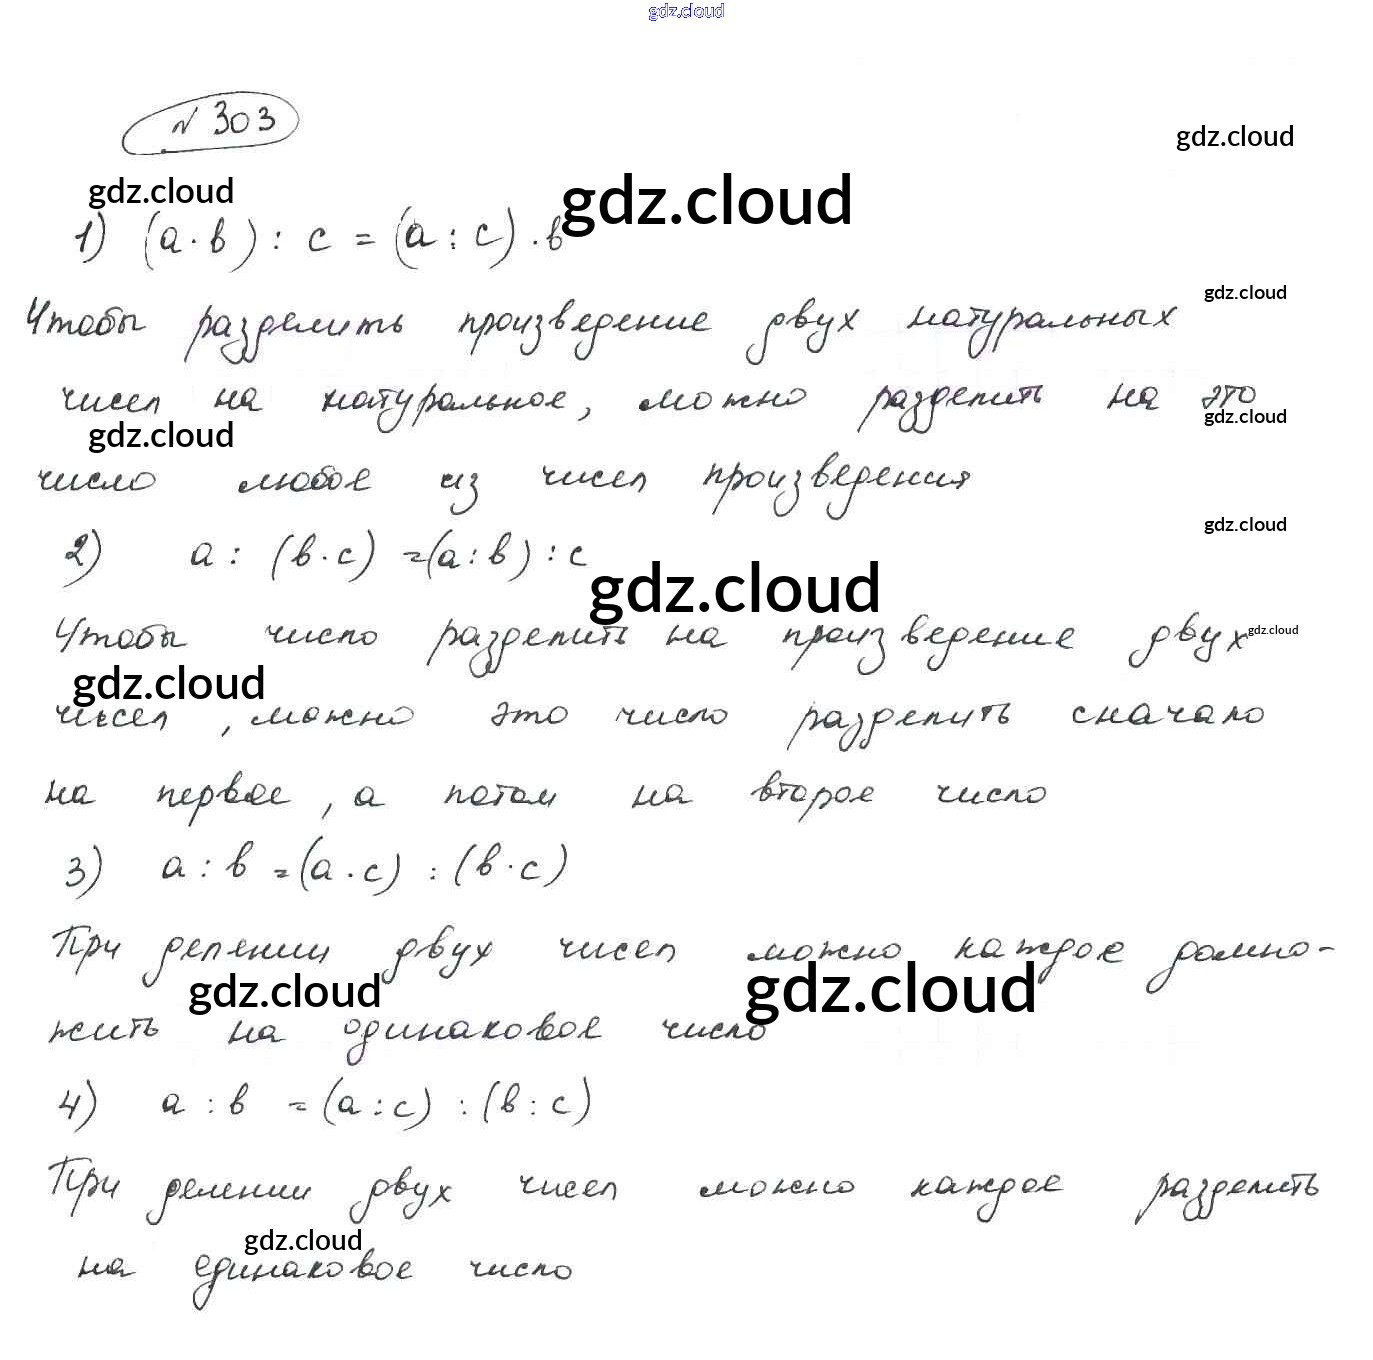 gdz.cloud
№ 303
gdz.cloud
gdz.cloud
gdz.cloud
1) (a · b) : c = (a : c) · b
gdz.cloud
Чтобы разделить произведение двух натуральных
чисел на натуральное, можно разделить на это
gdz.cloud
gdz.cloud
число любое из чисел произведения
gdz.cloud
2) a : (b · c) = (a : b) : c
gdz.cloud
Чтобы число разделить на произведение двух
gdz.cloud
gdz.cloud
чисел, можно это число разделить сначало
на первое, а потом на второе число
3) a : b = (a · c) : (b · c)
При делении двух чисел можно каждое домно-
gdz.cloud
gdz.cloud
жить на одинаковое число
4) a : b = (a : c) : (b : c)
При делении двух чисел можно каждое разделить
gdz.cloud
на единаковое число